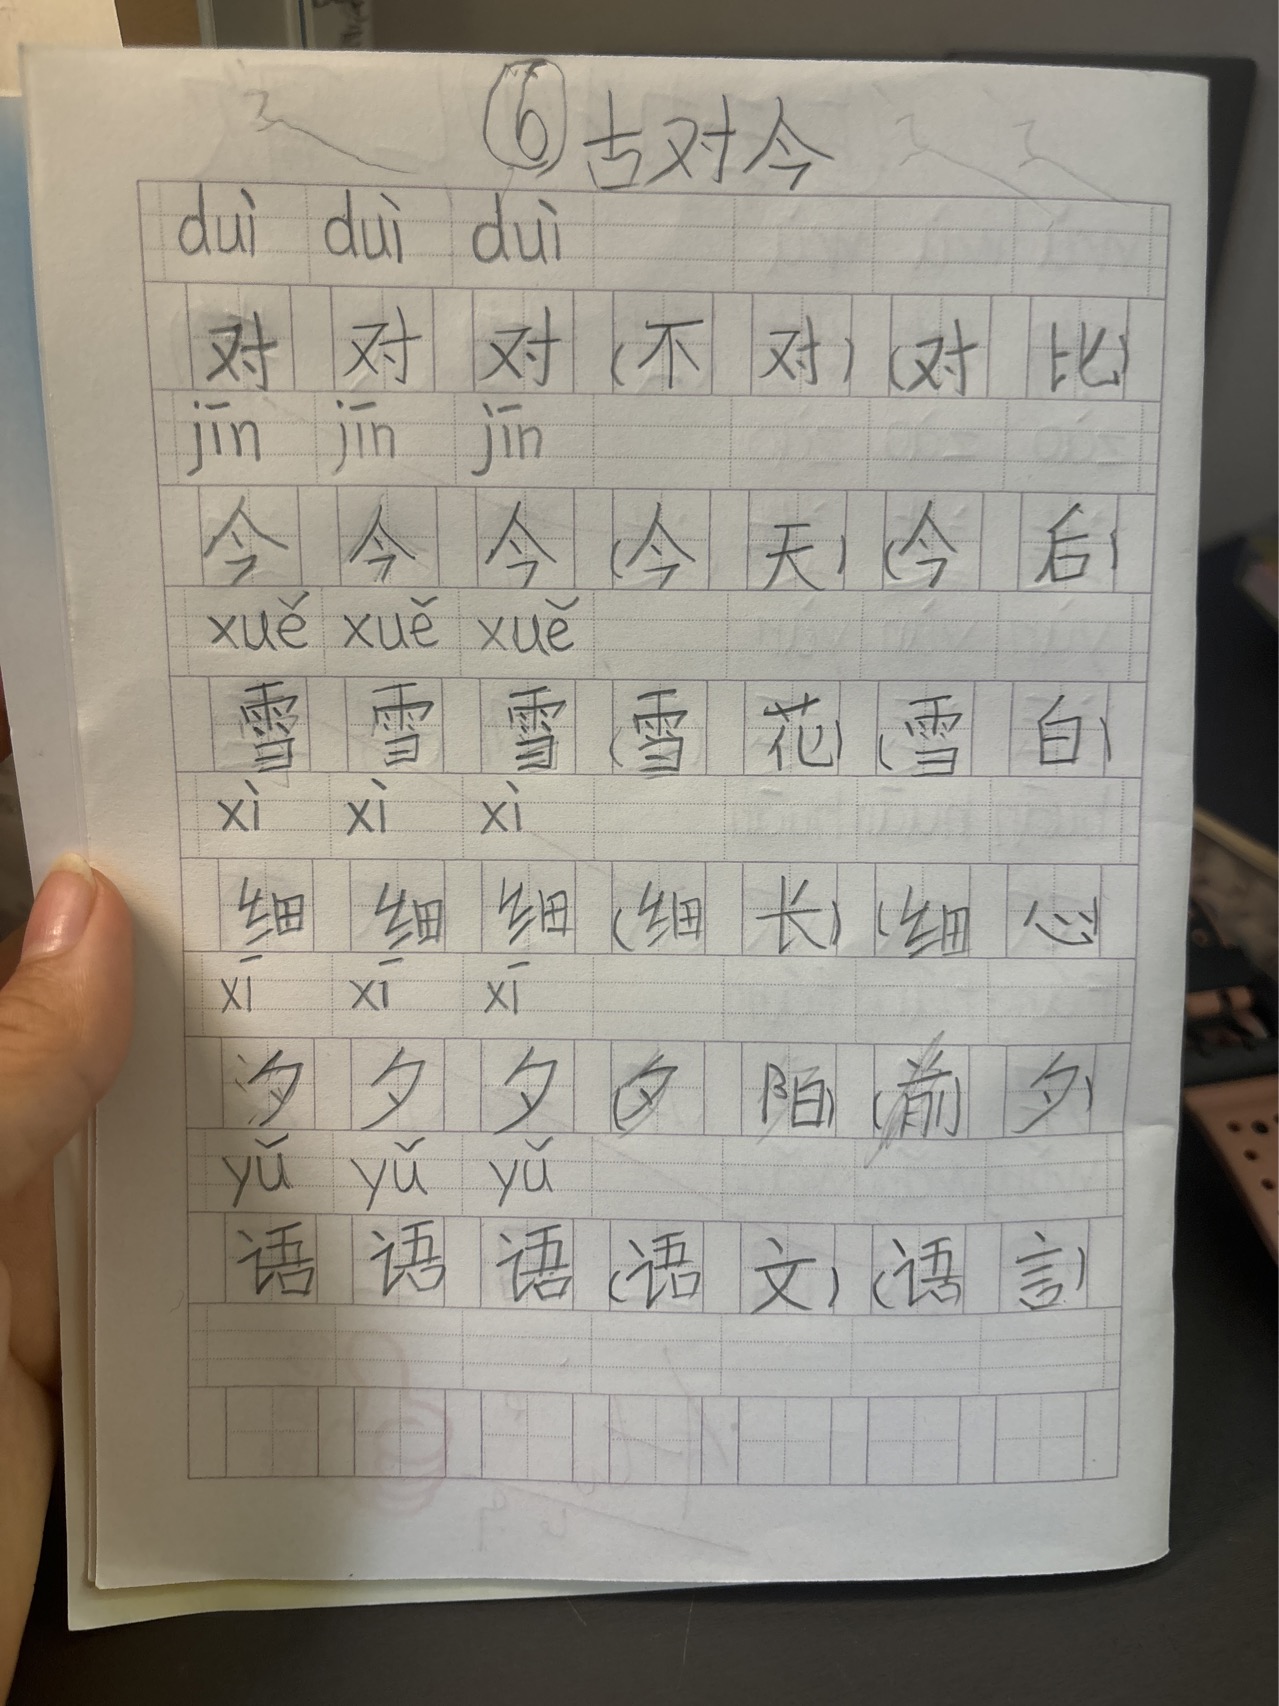 ⑥古对今
duì duì duì
对 对 对 (不 对) (对 比)
jīn jīn jīn
今 今 今 (今 天) (今 后)
xuě xuě xuě
雪 雪 雪 (雪 花) (雪 白)
xì xì xì
细 细 细 (细 长) (细 心)
xī xī xī
汐 夕 夕 (夕 阳) (前 夕)
yǔ yǔ yǔ
语 语 语 (语 文) (语 言)